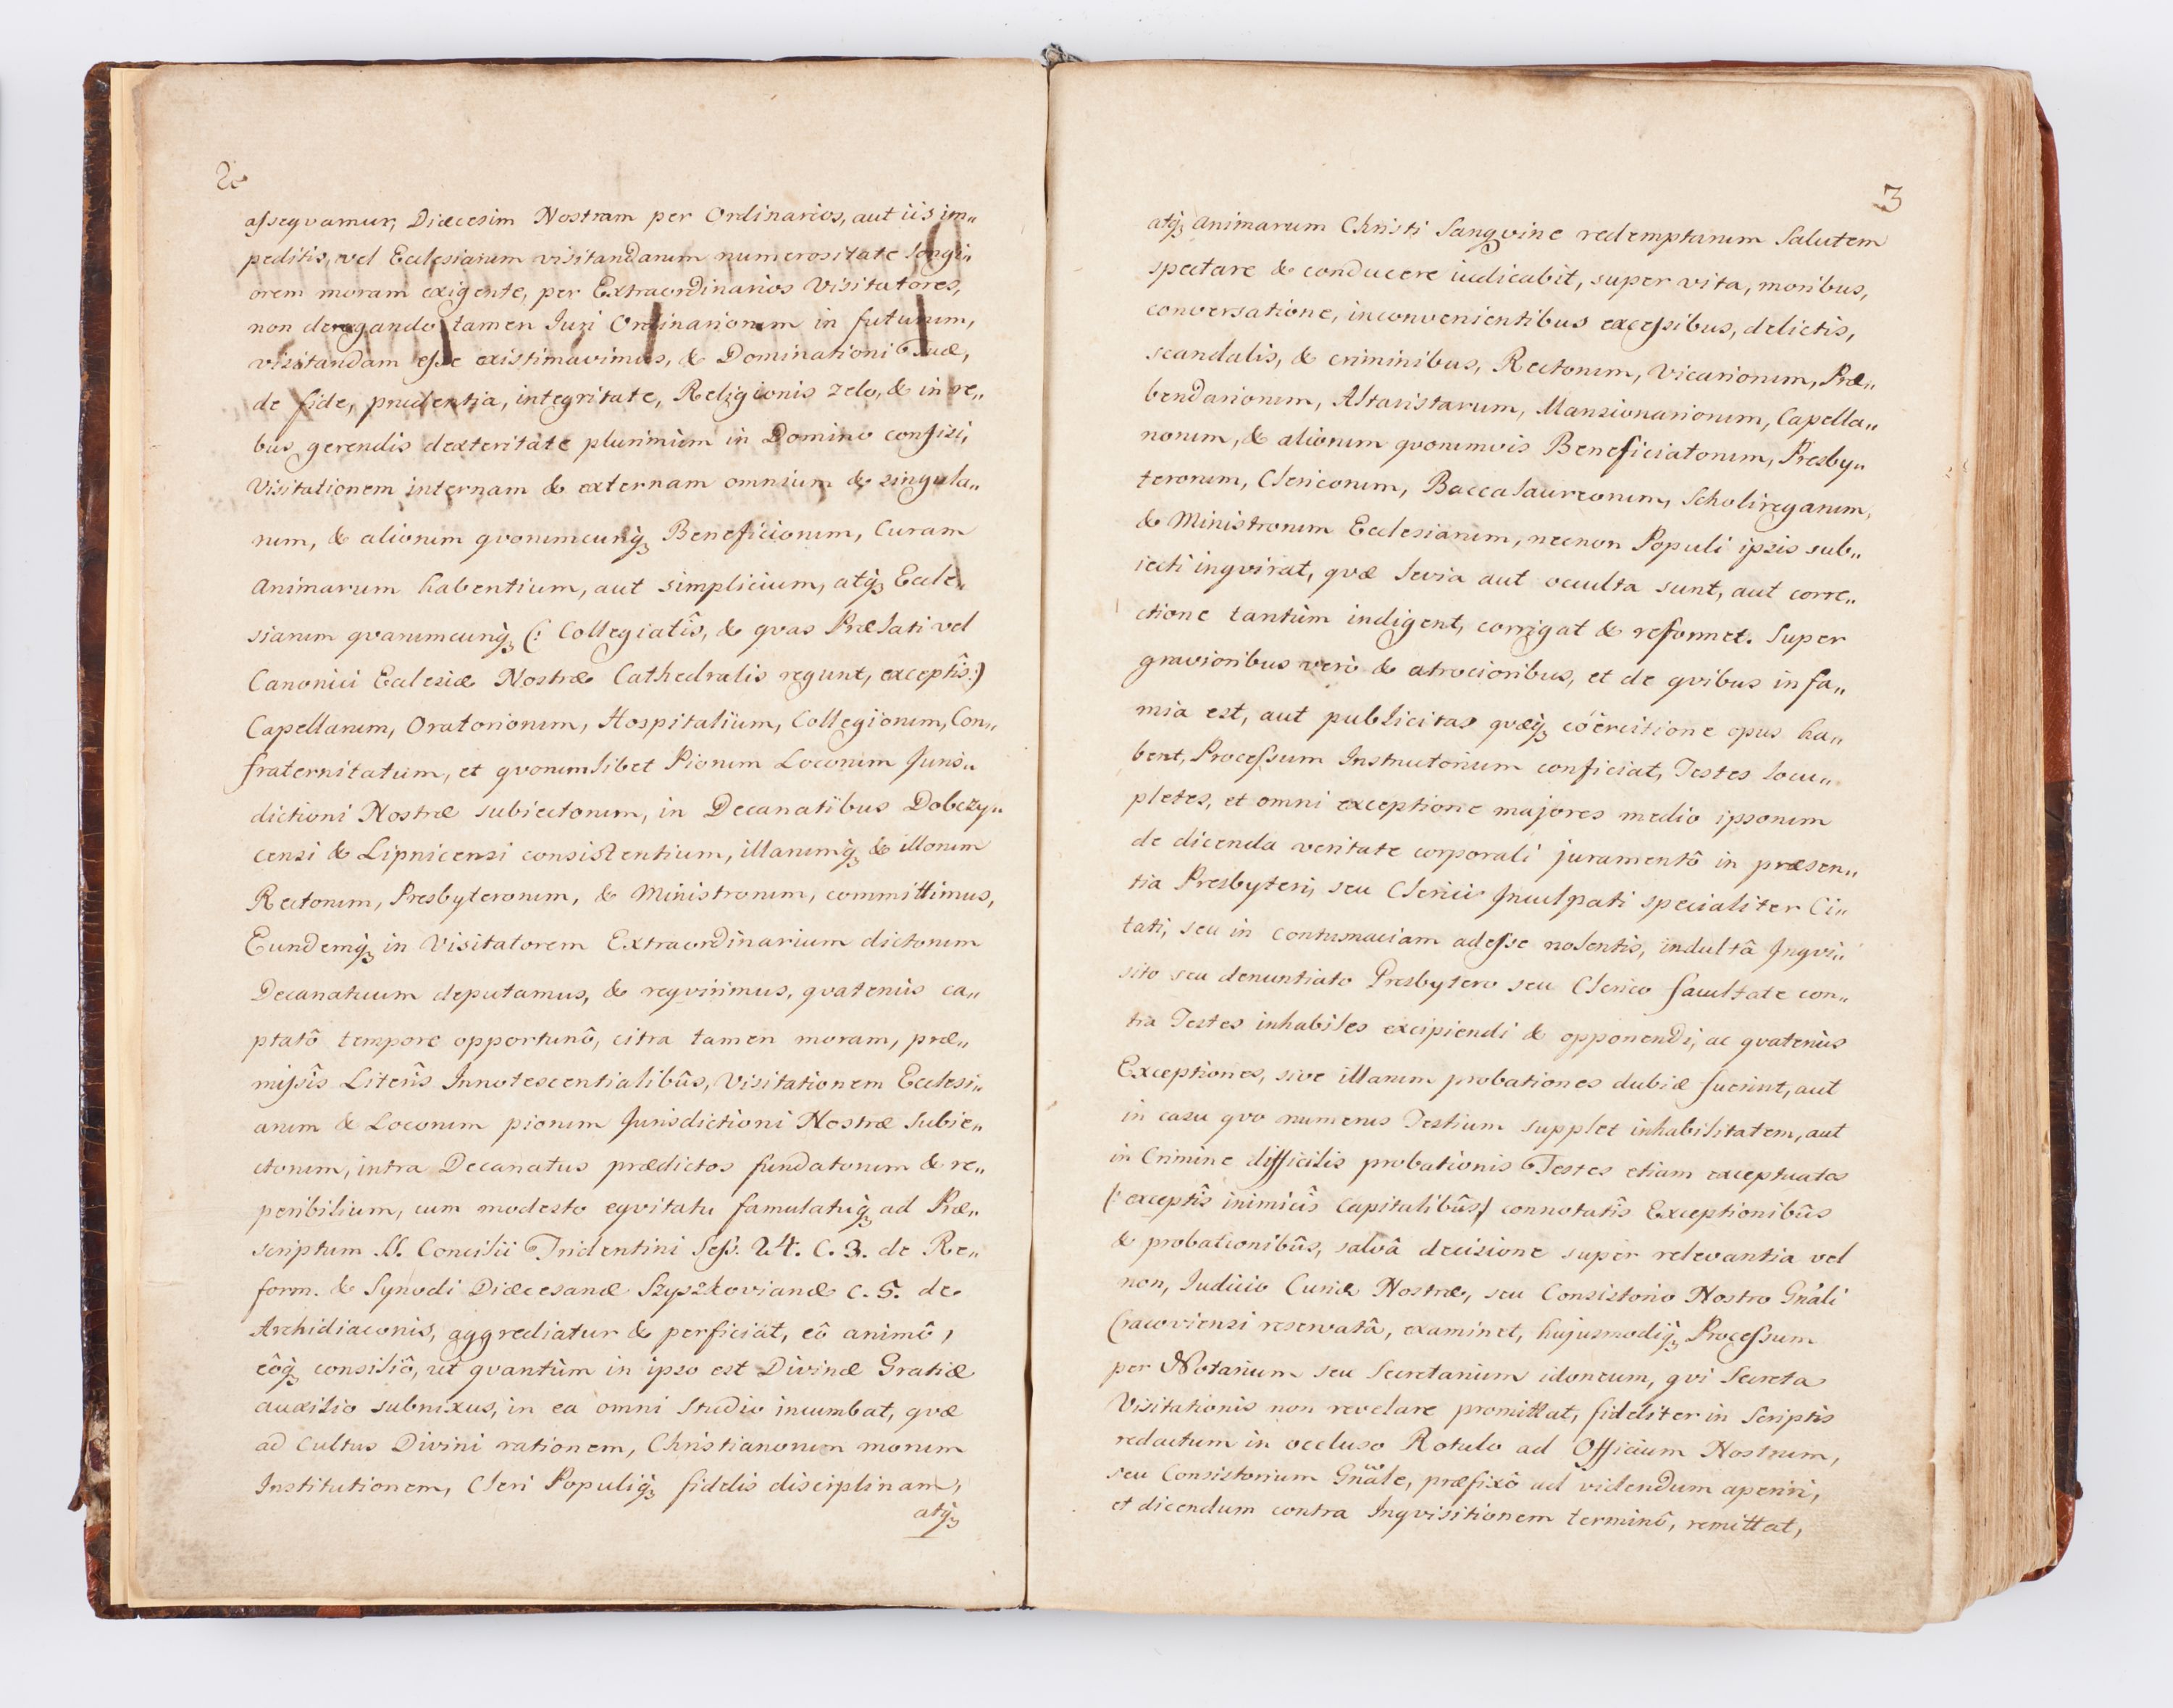 2
assequamur, Diæcesim Nostram per Ordinarios, aut iis im„
peditis, vel Ecclesiarum visitandarum numerositate longi„
orem moram exigente, per Extraordinarios Visitatores,
non derogando tamen Juri Ordinariorum in futurum,
visitandam esse existimavimus, & Dominationi Tuæ,
de fide, prudentia, integritate, Religionis zelo, & in re„
bus gerendis dexteritate plurimùm in Domino confisi,
Visitationem internam & externam omnium & singula„
rum, & aliorum qvorumcunqꝫ Beneficiorum, Curam
Animarum habentium, aut simplicium, atqꝫ Eccle„
siarum qvarumcunqꝫ (: Collegiatîs, & qvas Prælati vel
Canonici Ecclesiæ Nostræ Cathedralis regunt, exceptîs :)
Capellarum, Oratoriorum, Hospitalium, Collegiorum, Con„
fraternitatum, et qvorumlibet Piorum Locorum Juris„
dictioni Nostræ subiectorum, in Decanatibus Dobczy„
censi & Lipnicensi consistentium, illarumqꝫ & illorum
Rectorum, Presbyterorum, & Ministrorum, committimus,
Eundemqꝫ in Visitatorem Extraordinarium dictorum
Decanatuum deputamus, & reqvirimus, qvatenùs ca„
ptatô tempore opportunô, citra tamen moram, præ„
missîs Literîs Innotescentialibûs, Visitationem Ecclesi„
arum & Locorum piorum Jurisdictioni Nostræ Subie„
ctorum, intra Decanatus prædictos fundatorum & re„
peribilium, cum modesto eqvitatu famulatuqꝫ ad Præ„
scriptum S. Concilii Tridentini Sess. 24. C. 3. de Re„
form. & Synodi Diæcesanæ Szyszkovianæ C. 5. de
Archidiaconis, aggrediatur & perficiat, eô animô,
eôqꝫ consiliô, ut qvantùm in ipso est Divinæ Gratiæ
auxilio subnixus, in ea omni Studio incumbat, qvæ
ad Cultus Divini rationem, Christianorum morum
Institutionem, Cleri Populiqꝫ fidelis disciplinam,
atqꝫ
3
atqꝫ Animarum Christi Sangvine redemptarum Salutem
spectare & conducere iudicabit, super vita, moribus,
conversatione, inconvenientibus excessibus, delictis,
scandalis, & criminibus, Rectorum, Vicariorum, Præ„
bendariorum, Altaristarum, Mansionariorum, Capella„
norum, & aliorum qvorumvis Beneficiatorum, Presby„
terorum, Clericorum, Baccalaureorum, Scholiregarum,
& Ministrorum Ecclesiarum, necnon Populi ipsis sub„
iecti inqvirat, qvæ levia aut occulta sunt, aut corre„
ctione tantùm indigent, corrigat & reformet. Super
gravioribus verò & atrocioribus, et de qvibus infa„
mia est, aut publicitas qvæqꝫ coërcitione opus ha„
bent, Processum Instructorium conficiat, Testes locu„
pletes, et omni exceptione majores medio ipsorum
de dicenda veritate corporali juramentô in præsen„
tia Presbyteri, seu Clerici Inculpati specialiter Ci„
tati, seu in contumaciam adesse nolentis, indultâ Inqvi„
sito seu denuntiato Presbytero seu Clerico facultate con„
tra Testes inhabiles excipiendi & opponendi, ac qvatenùs
Exceptiones, sive illarum probationes dubiæ fuerint, aut
in casu qvo numerus Testium supplet inhabilitatem, aut
in Crimine difficilis probationis Testes etiam exceptuatos
(: exceptîs inimicîs Capitalibûs :) connotatîs Exceptionibûs
& probationibûs, salvâ decisione super relevantia vel
non, Iudicio Curiæ Nostræ, seu Consistorio Nostro Gnãli
Cracoviensi reservatâ, examinet, hujusmodiqꝫ Processum
per Notarium seu Secretarium idoneum, qvi Secreta
Visitationis non revelare promittat, fideliter in Scriptis
redactum in occluso Rotulo ad Officium Nostrum,
seu Consistorium Gnãle, præfixô ad videndum aperiri,
et dicendum contra Inqvisitionem terminô, remittat,